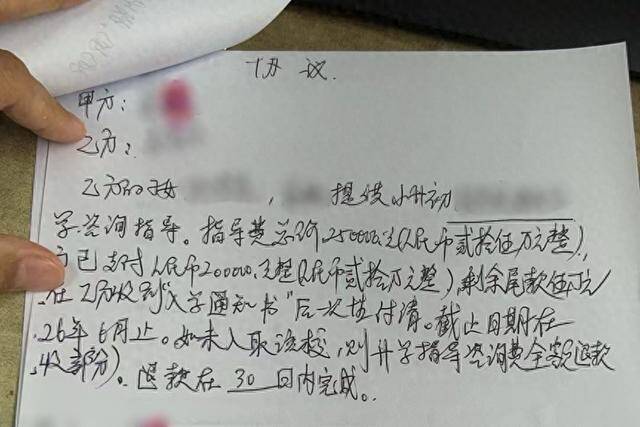 协 议.
甲方：
乙方：
乙方的接 ， 提供小升初
学咨询指导。指导费总额250000元(人民币贰拾伍万元整),
方已支付人民币200000.元整(人民币贰拾万元整),剩余尾款伍万元/
在乙方收到"入学通知书"后一次性付清。截止日期在
26年6月止。如未入取该校,则升学指导咨询费全额退款
收部分)。退款在 30 日内完成。